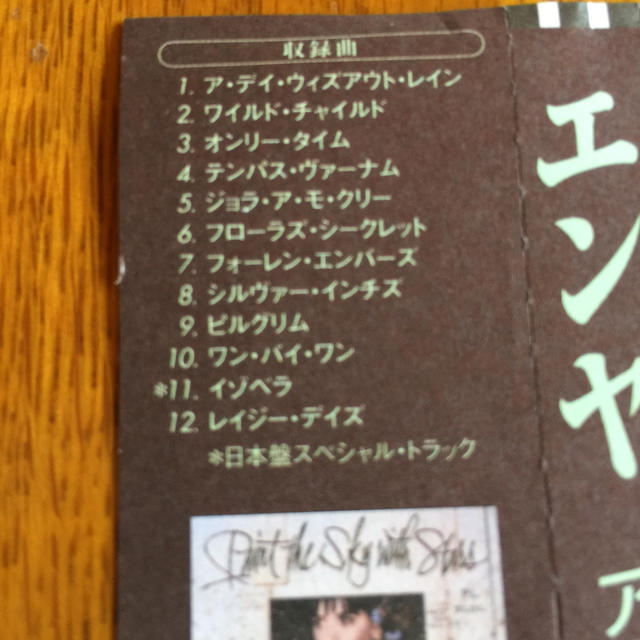 収録曲
1. ア・デイ・ウィズアウト・レイン
2. ワイルド・チャイルド
3. オンリー・タイム
4. テンパス・ヴァーナム
5. ジョラ・ア・モ・クリー
6. フローラズ・シークレット
7. フォーレン・エンバーズ
8. シルヴァー・インチズ
9. ピルグリム
10. ワン・バイ・ワン
※11. イゾベラ
12. レイジー・デイズ
※日本盤スペシャル・トラック
Paint the Sky with Stars
エンヤ
ア